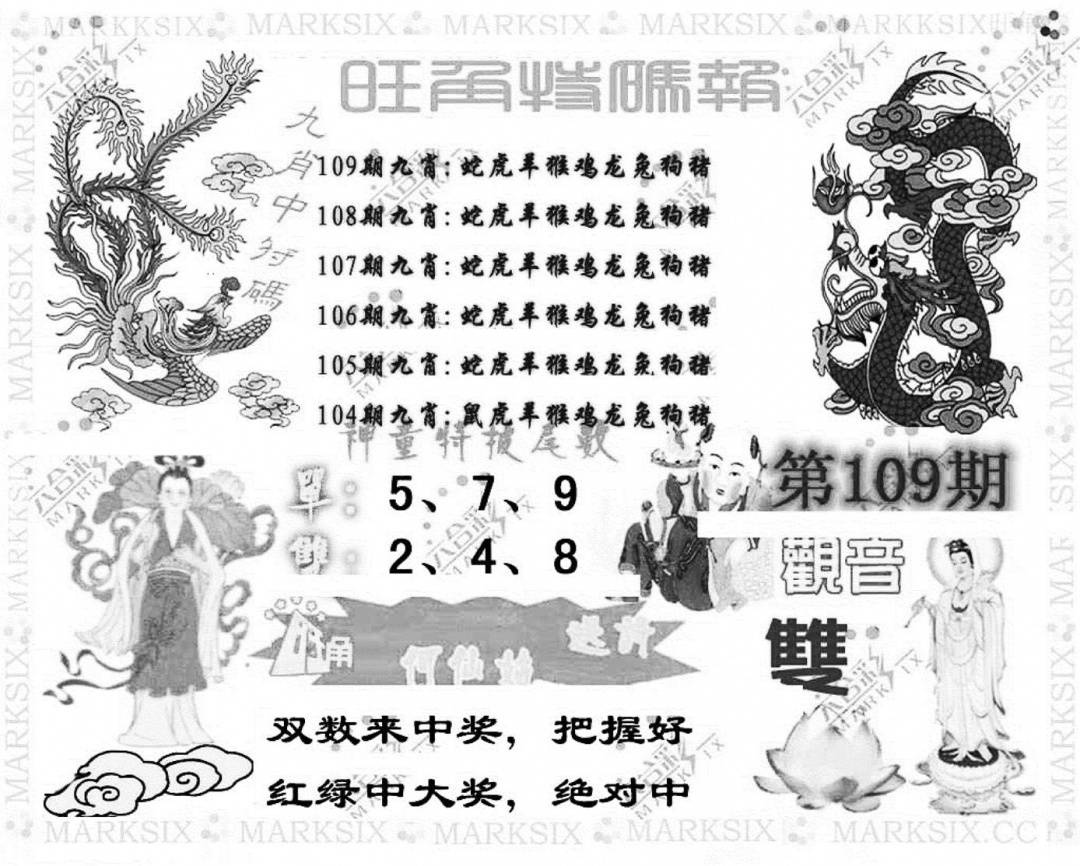 MARKSIX MARKKSIX MARKSIX MARKSIX MARKKSIX
旺角特碼報
九肖中特碼
109期九肖:蛇虎羊猴鸡龙兔狗猪
108期九肖:蛇虎羊猴鸡龙兔狗猪
107期九肖:蛇虎羊猴鸡龙兔狗猪
106期九肖:蛇虎羊猴鸡龙兔狗猪
105期九肖:蛇虎羊猴鸡龙兔狗猪
104期九肖:鼠虎羊猴鸡龙兔狗猪
神童特报尾數
單: 5、7、9
雙: 2、4、8
第109期
觀音
雙
何仙姑
双数来中奖，把握好
红绿中大奖，绝对中
MARKSIX MARKSIX MARKSIX MARKSIX MARKSIX.CC